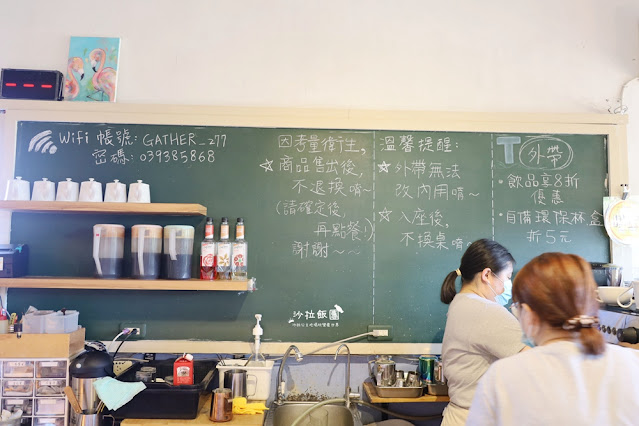 Wifi 帳號: GATHER_277
密碼: 039385868
因考量衛生,
☆商品售出後,
不退換唷~
(請確定後,
再點餐!)
謝謝~~
溫馨提醒:
☆外帶無法
改內用唷~
☆入座後,
不換桌唷~
外帶
·飲品享8折
優惠
·自備環保杯.盒
折5元
沙拉飯團